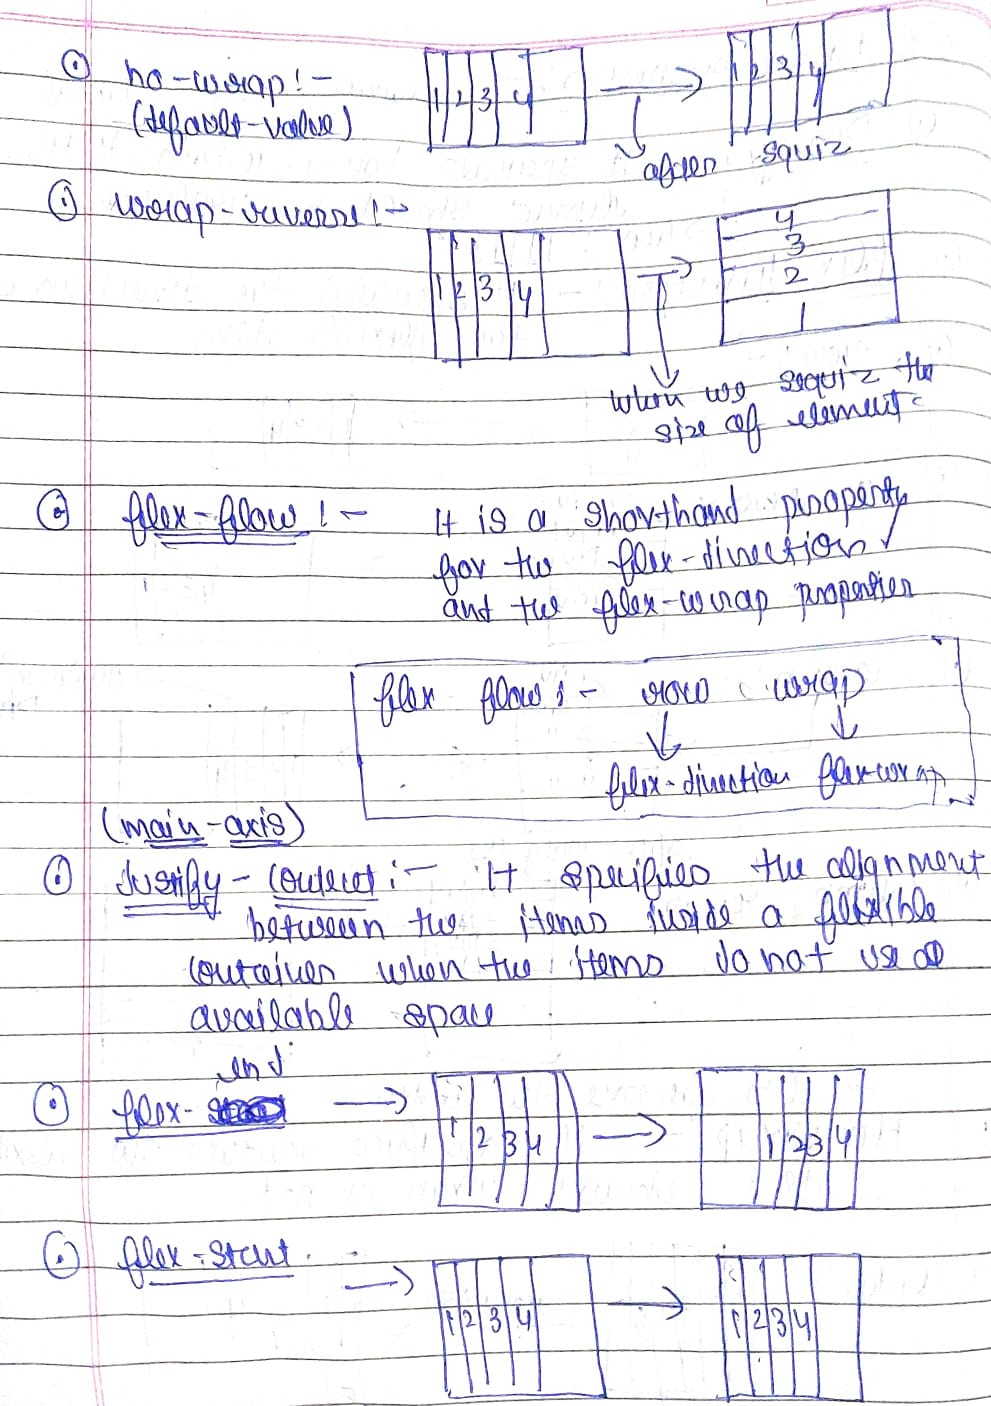 no-wrap :-
(default-value)
1 2 3 4
1 2 3 4
after squiz
wrap-reverse :-
1 2 3 4
4
3
2
1
when we sequiz the
size of element
flex-flow :- It is a shorthand property
for the flex-direction
and the flex-wrap properties
flex flow :- row wrap
flex-direction flex-wrap
(main-axis)
Justify-content :- It specifies the alignment
between the items inside a flexible
container when the items do not use
available space
end
flex-
1 2 3 4
1 2 3 4
flex-start
1 2 3 4
1 2 3 4